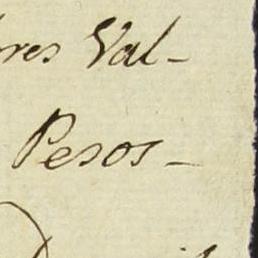 res Val-
Pesos-